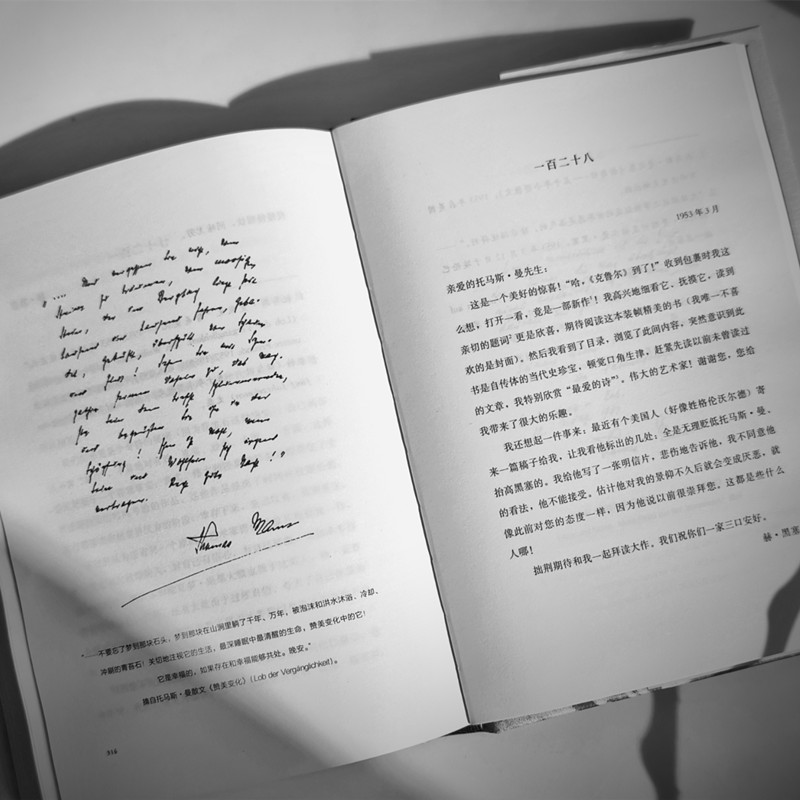 "…… Und vergessen Sie nicht, vom
Steine zu träumen, vom moosigen
Steine, der im Bergbach liegt seit
tausend und tausend Jahren, geba-
det, gekühlt, überspült von Schaum
und Fluß! Sehen Sie mit Sym-
Dasein zu, das
Sein dem tiefst schlummernden,
und begrüßen Sie ihn in der
Schöpfung! Ihm ist wohl, wenn
Sein und Wohlsein sich irgend
vertragen. Recht gute Nacht!"
Thomas Mann
“……不要忘了梦到那块石头，梦到那块在山涧里躺了千年、万年，被泡沫和洪水沐浴、冷却、
冲刷的青苔石！关切地注视它的生活，最深睡眠中最清醒的生命，赞美变化中的它！
它是幸福的，如果存在和幸福能够共处。晚安。”
摘自托马斯·曼献文《赞美变化》（Lob der Vergänglichkeit）。
一百二十八
1953年3月
亲爱的托马斯·曼先生：
这是一个美好的惊喜！“哈，《克鲁尔》到了！”收到包裹时我这
么想，打开一看，竟是一部新作¹！我高兴地细看它，抚摸它，读到
亲切的题词²更是欣喜，期待阅读这本装帧精美的书（我唯一不喜
欢的是封面）。然后我看到了目录，浏览了此间内容，突然意识到此
书是自传体的当代史珍宝，顿觉口角生津，赶紧先读以前未曾读过
的文章，我特别欣赏“最爱的诗”³。伟大的艺术家！谢谢您，您给
我带来了很大的乐趣。
我还想起一件事来：最近有个美国人（好像姓格伦沃尔德）寄
来一篇稿子给我，让我看他标出的几处：全是无理贬低托马斯·曼、
抬高黑塞的。我给他写了一张明信片，悲伤地告诉他，我不同意他
的看法，他不能接受。估计他对我的景仰不久后就会变成厌恶，就
像此前对您的态度一样，因为他说以前很崇拜您，这都是些什么
人哪！
拙荆期待和我一起拜读大作。我们祝你们一家三口安好。
赫·黑塞